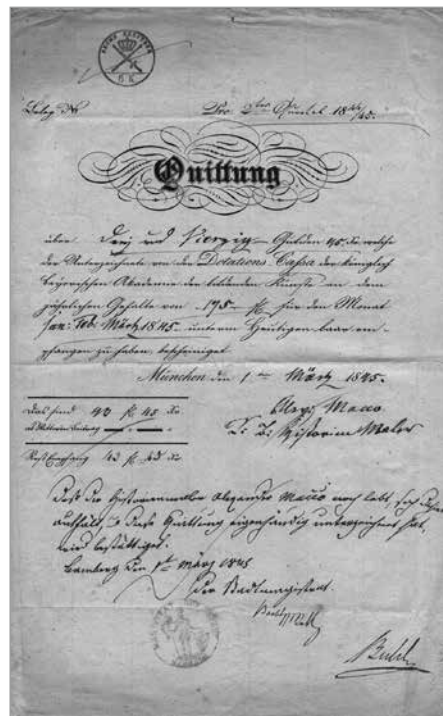 SECHS KREUZER
6 K
Beleg №
Pro 2ten Quartal 1844/45.
Quittung
über Drej und Vierzig Gulden 45 Xr welche
der Unterzeichnete von der Dotations-Cassa der königlich
bayerischen Akademie der bildenden Künste an dem
jährlichen Gehalte von 175 fl. für den Monat
Jan: Feb: März 1845. unterm Heutigen baar em-
pfangen zu haben, bescheiniget
München den 1ten März 1845.
das sind 43 fl. 45 Xr
Alex: Macco
Historien Maler
Rest Empfang 43 fl. 45 Xr
Daß der Historienmaler Alexander Macco noch lebt, sich dahier
aufhält, & diese Quittung eigenhändig unterzeichnet hat,
wird bestättiget.
Bamberg den 1ten März 1845
Der Stadtmagistrat.